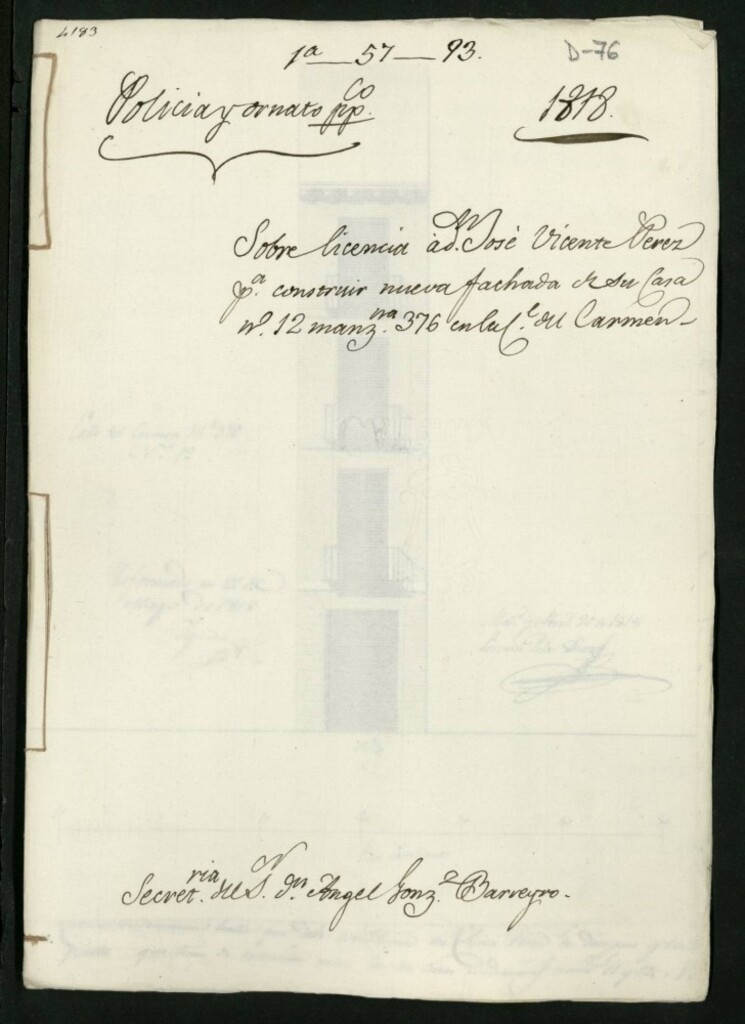 4183
1ª — 57 — 93.
D-76
Policia y ornato ppco.
1818.
Sobre licencia à dn. José Vicente Perez
pª. construir nueva fachada de su Casa
nº. 12 manzna. 376 en la Ce. del Carmen -
Secretria. del S. dn. Angel Gonzz. Barreyro.